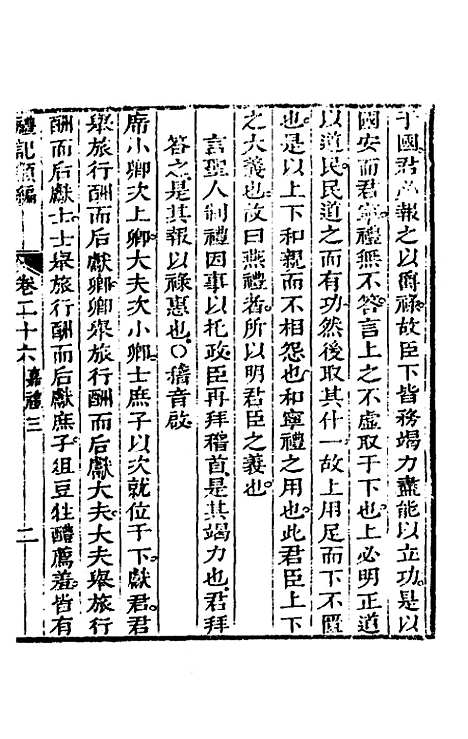 于國君必報之以爵祿故臣下皆務竭力盡能以立功是以
國安而君寧禮無不答言上之不虛取于下也上必明正道
以道民民道之而有功然後取其什一故上用足而下不匱
也是以上下和親而不相怨也和寧禮之用也此君臣上下
之大義也故曰燕禮者所以明君臣之義也
言聖人制禮因事以托政臣再拜稽首是其竭力也君拜
答之是其報以祿惠也○稽音啟
席小卿次上卿大夫次小卿士庶子以次就位于下獻君君
舉旅行酬而后獻卿卿舉旅行酬而后獻大夫大夫舉旅行
酬而后獻士士舉旅行酬而后獻庶子俎豆牲醴薦羞皆有
禮記類編 卷二十六 嘉禮三 二